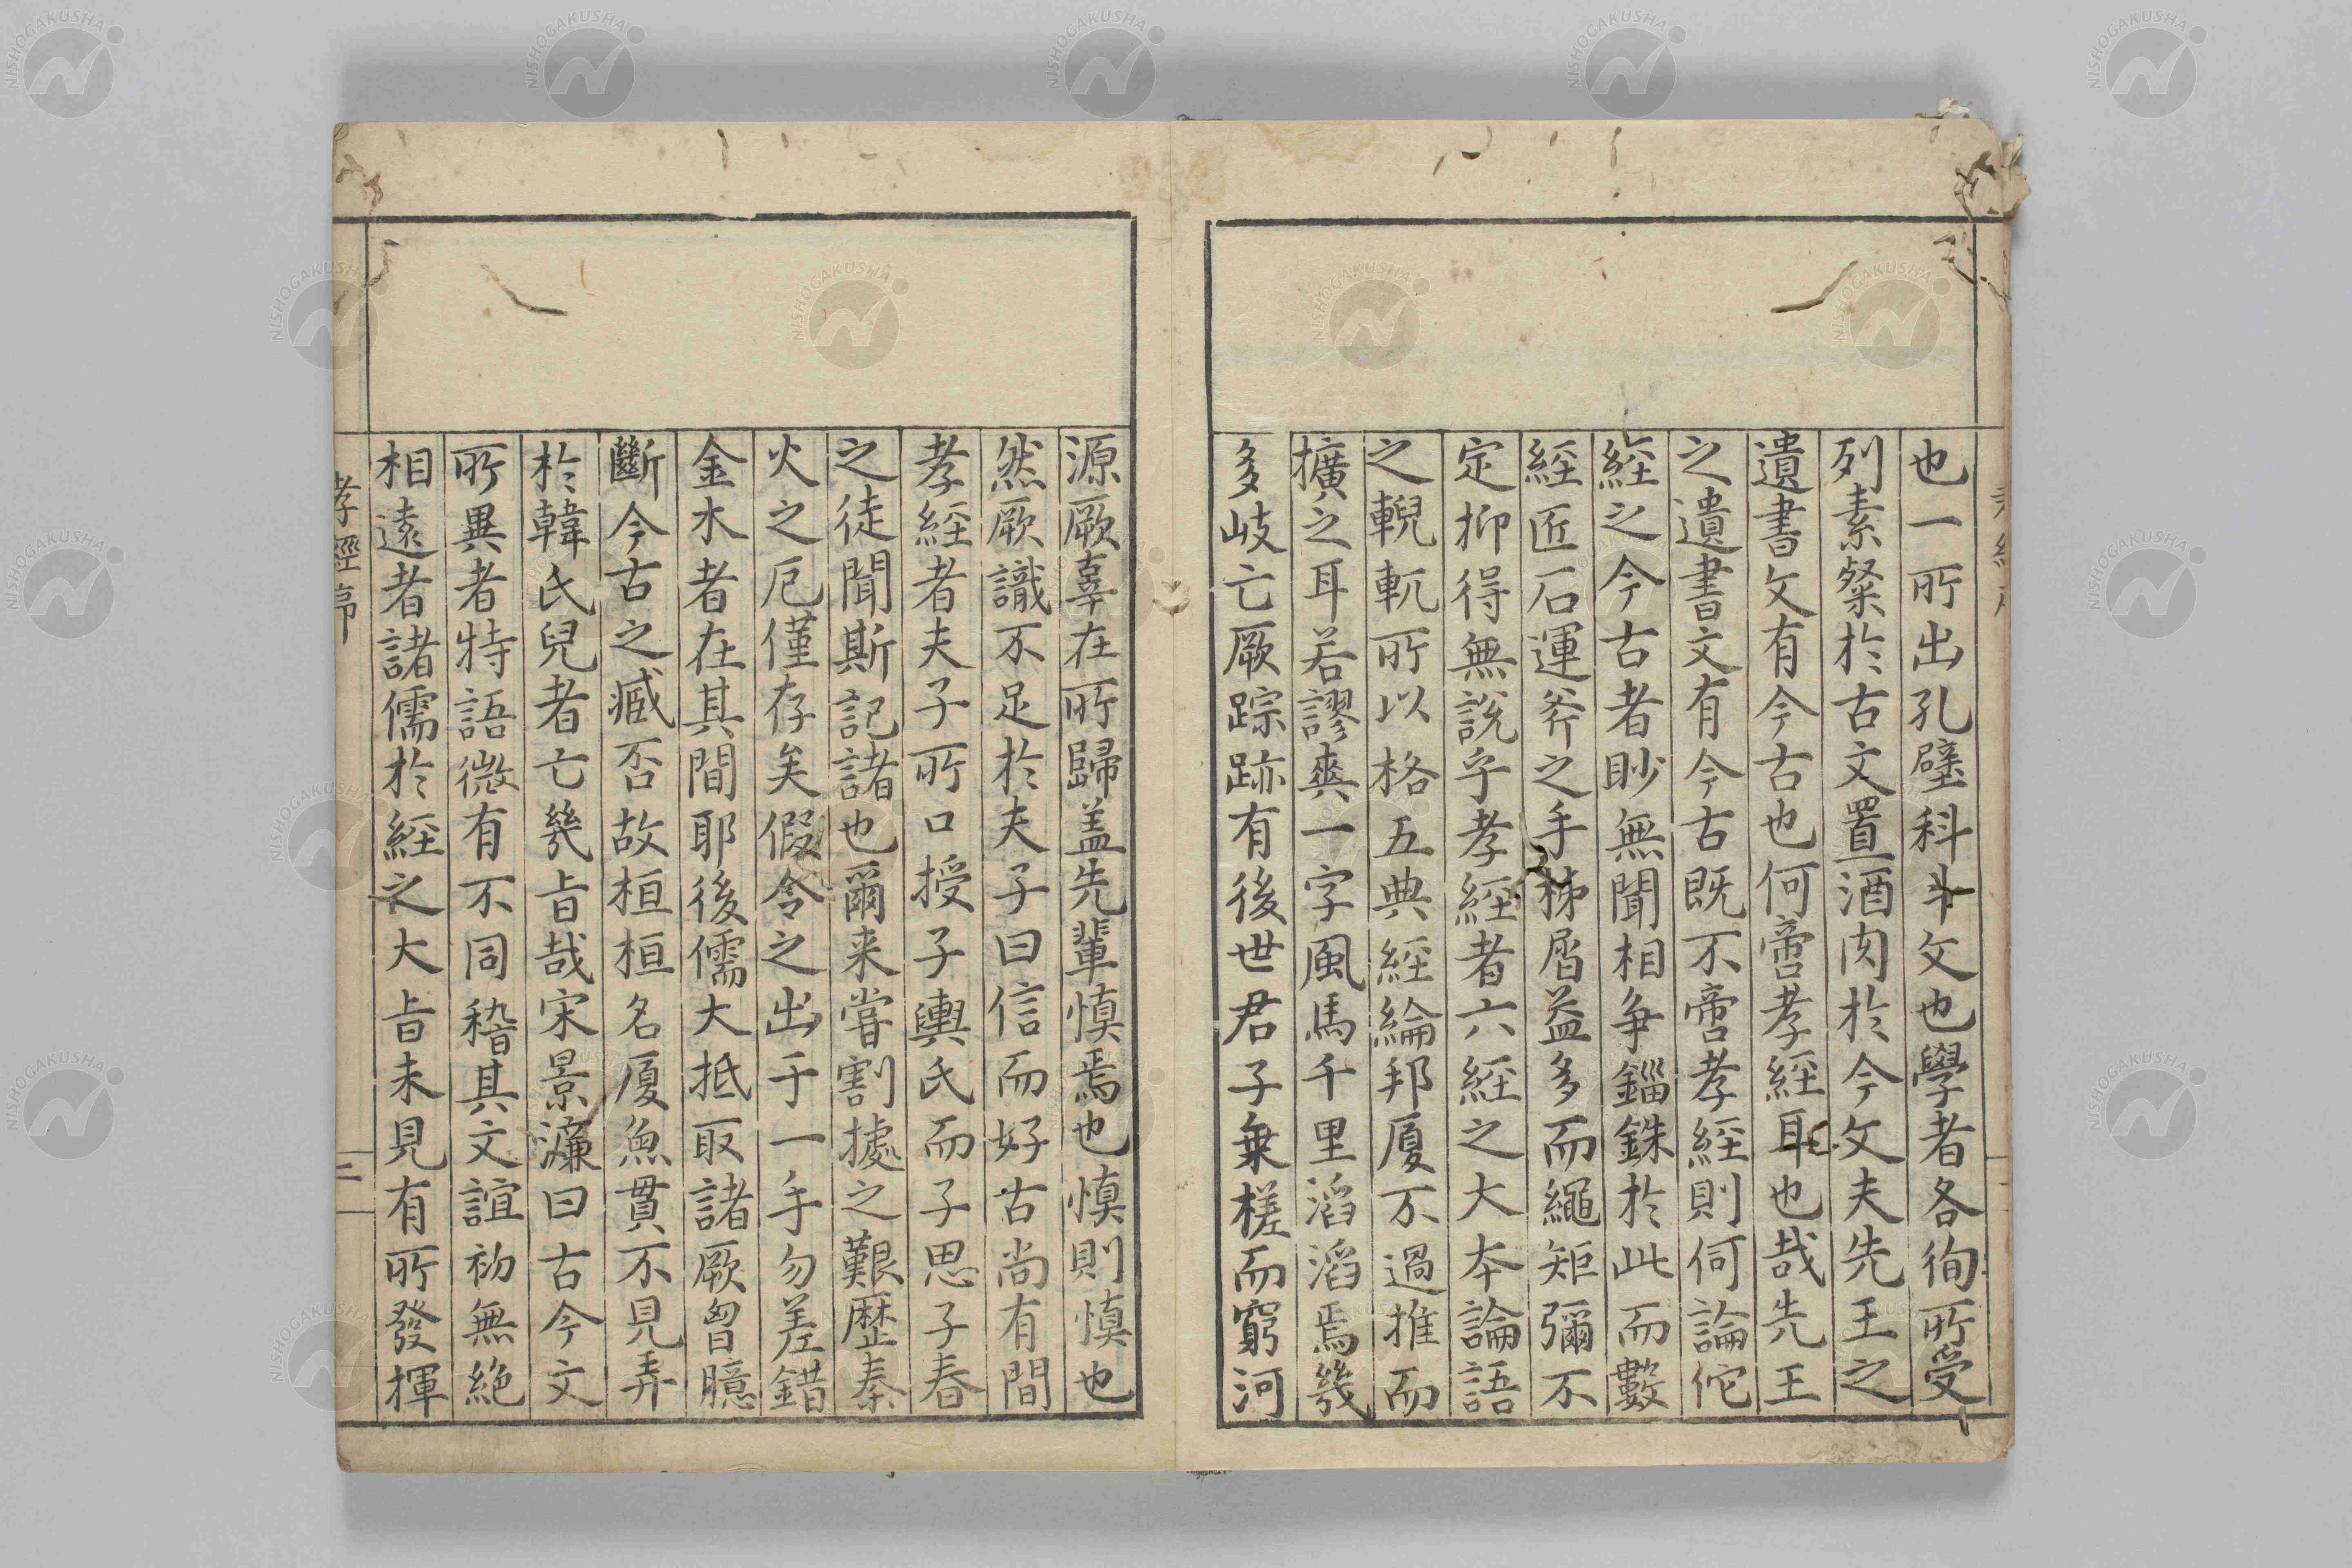 也一所出孔壁科斗文也學者各徇所受
列素粲於古文置酒肉於今文夫先王之
遺書文有今古也何啻孝經耳也哉先王
之遺書文有今古既不啻孝經則何論佗
經之今古者眇無聞相争錙銖於此而數
經匠石運斧之手稊屑益多而繩矩彌不
定抑得無說乎孝經者六經之大本論語
之輗軏所以格五典經綸邦厦不過推而
擴之耳若謬爽一字風馬千里滔滔焉幾
多岐亡厥踪跡有後世君子乗槎而窮河
源厥辜在所歸盖先輩慎焉也慎則慎也
然厥識不足於夫子曰信而好古尚有間
孝經者夫子所口授子輿氏而子思子春
之徒聞斯記諸也爾来嘗割據之艱歷秦
火之厄僅存矣假令之出于一手勿差錯
金水者在其間耶後儒大抵取諸厥胷臆
斷今古之臧否故桓桓名厦魚貫不見弄
於韓氏兒者亡幾旨哉宋景濂曰古今文
所異者特語微有不同稽其文誼初無絶
相遠者諸儒於經之大旨未見有所發揮
孝經序
三
NISHOGAKUSHA